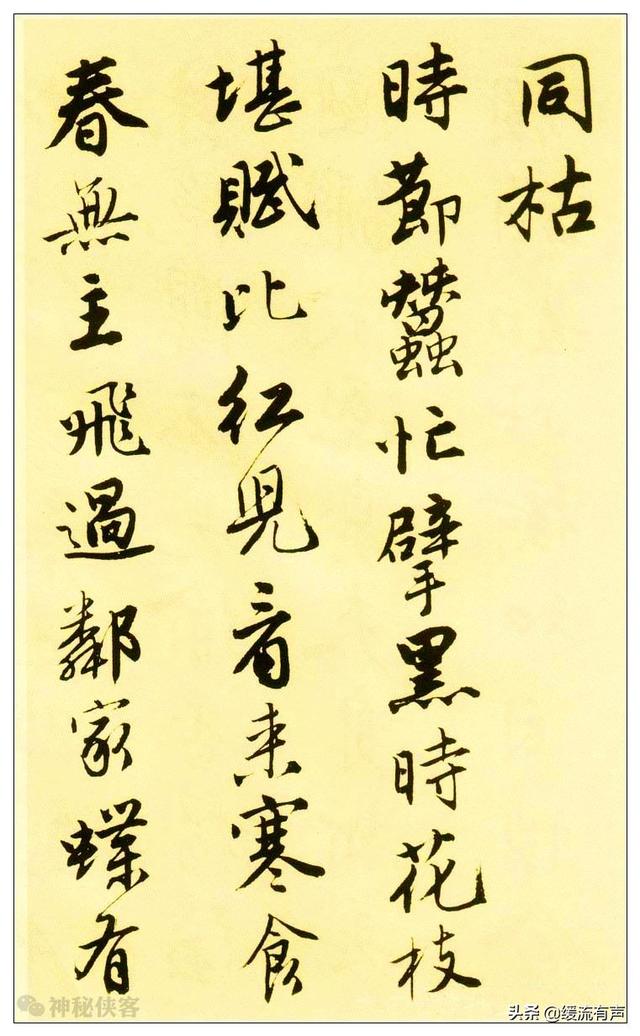 同枯
時節蠶忙擘黑時花枝
堪賦比紅兒看来寒食
春無主飛過鄰家蝶有
神秘侠客
头条 @缓流有声